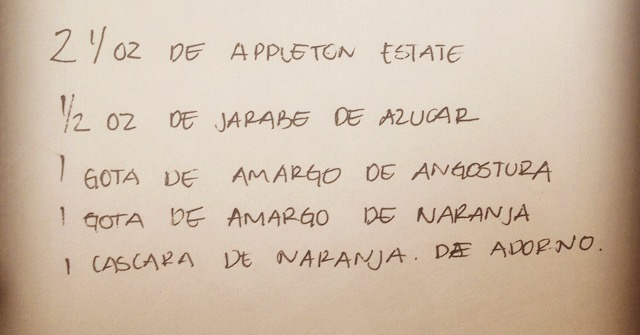 2 1/ OZ DE APPLETON ESTATE
1/2 OZ DE JARABE DE AZUCAR
1 GOTA DE AMARGO DE ANGOSTURA
1 GOTA DE AMARGO DE NARANJA
1 CASCARA DE NARANJA. DE ADORNO.